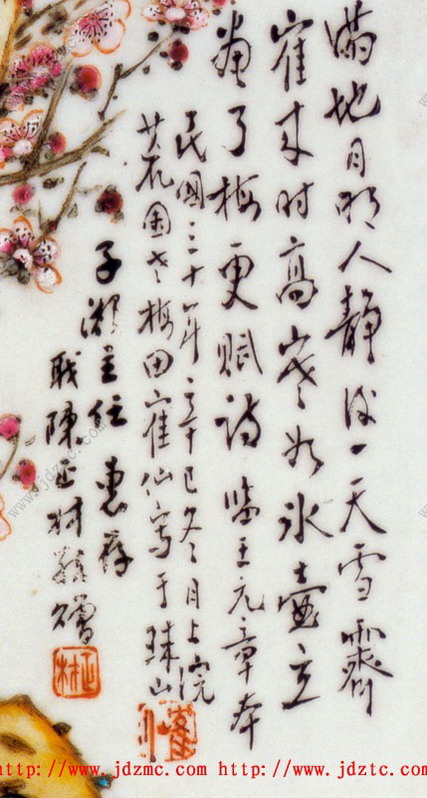 满地月明人静后一天雪霽
隺来时高寒如冰壶立
画了梅更赋诗临王元章本
民国三十年辛巳冬月上浣
荒园老梅田隺仙写于珠山
子湖主任惠存
职陈正材敬赠
正材
http://www.jdzmc.com http://www.jdztc.com